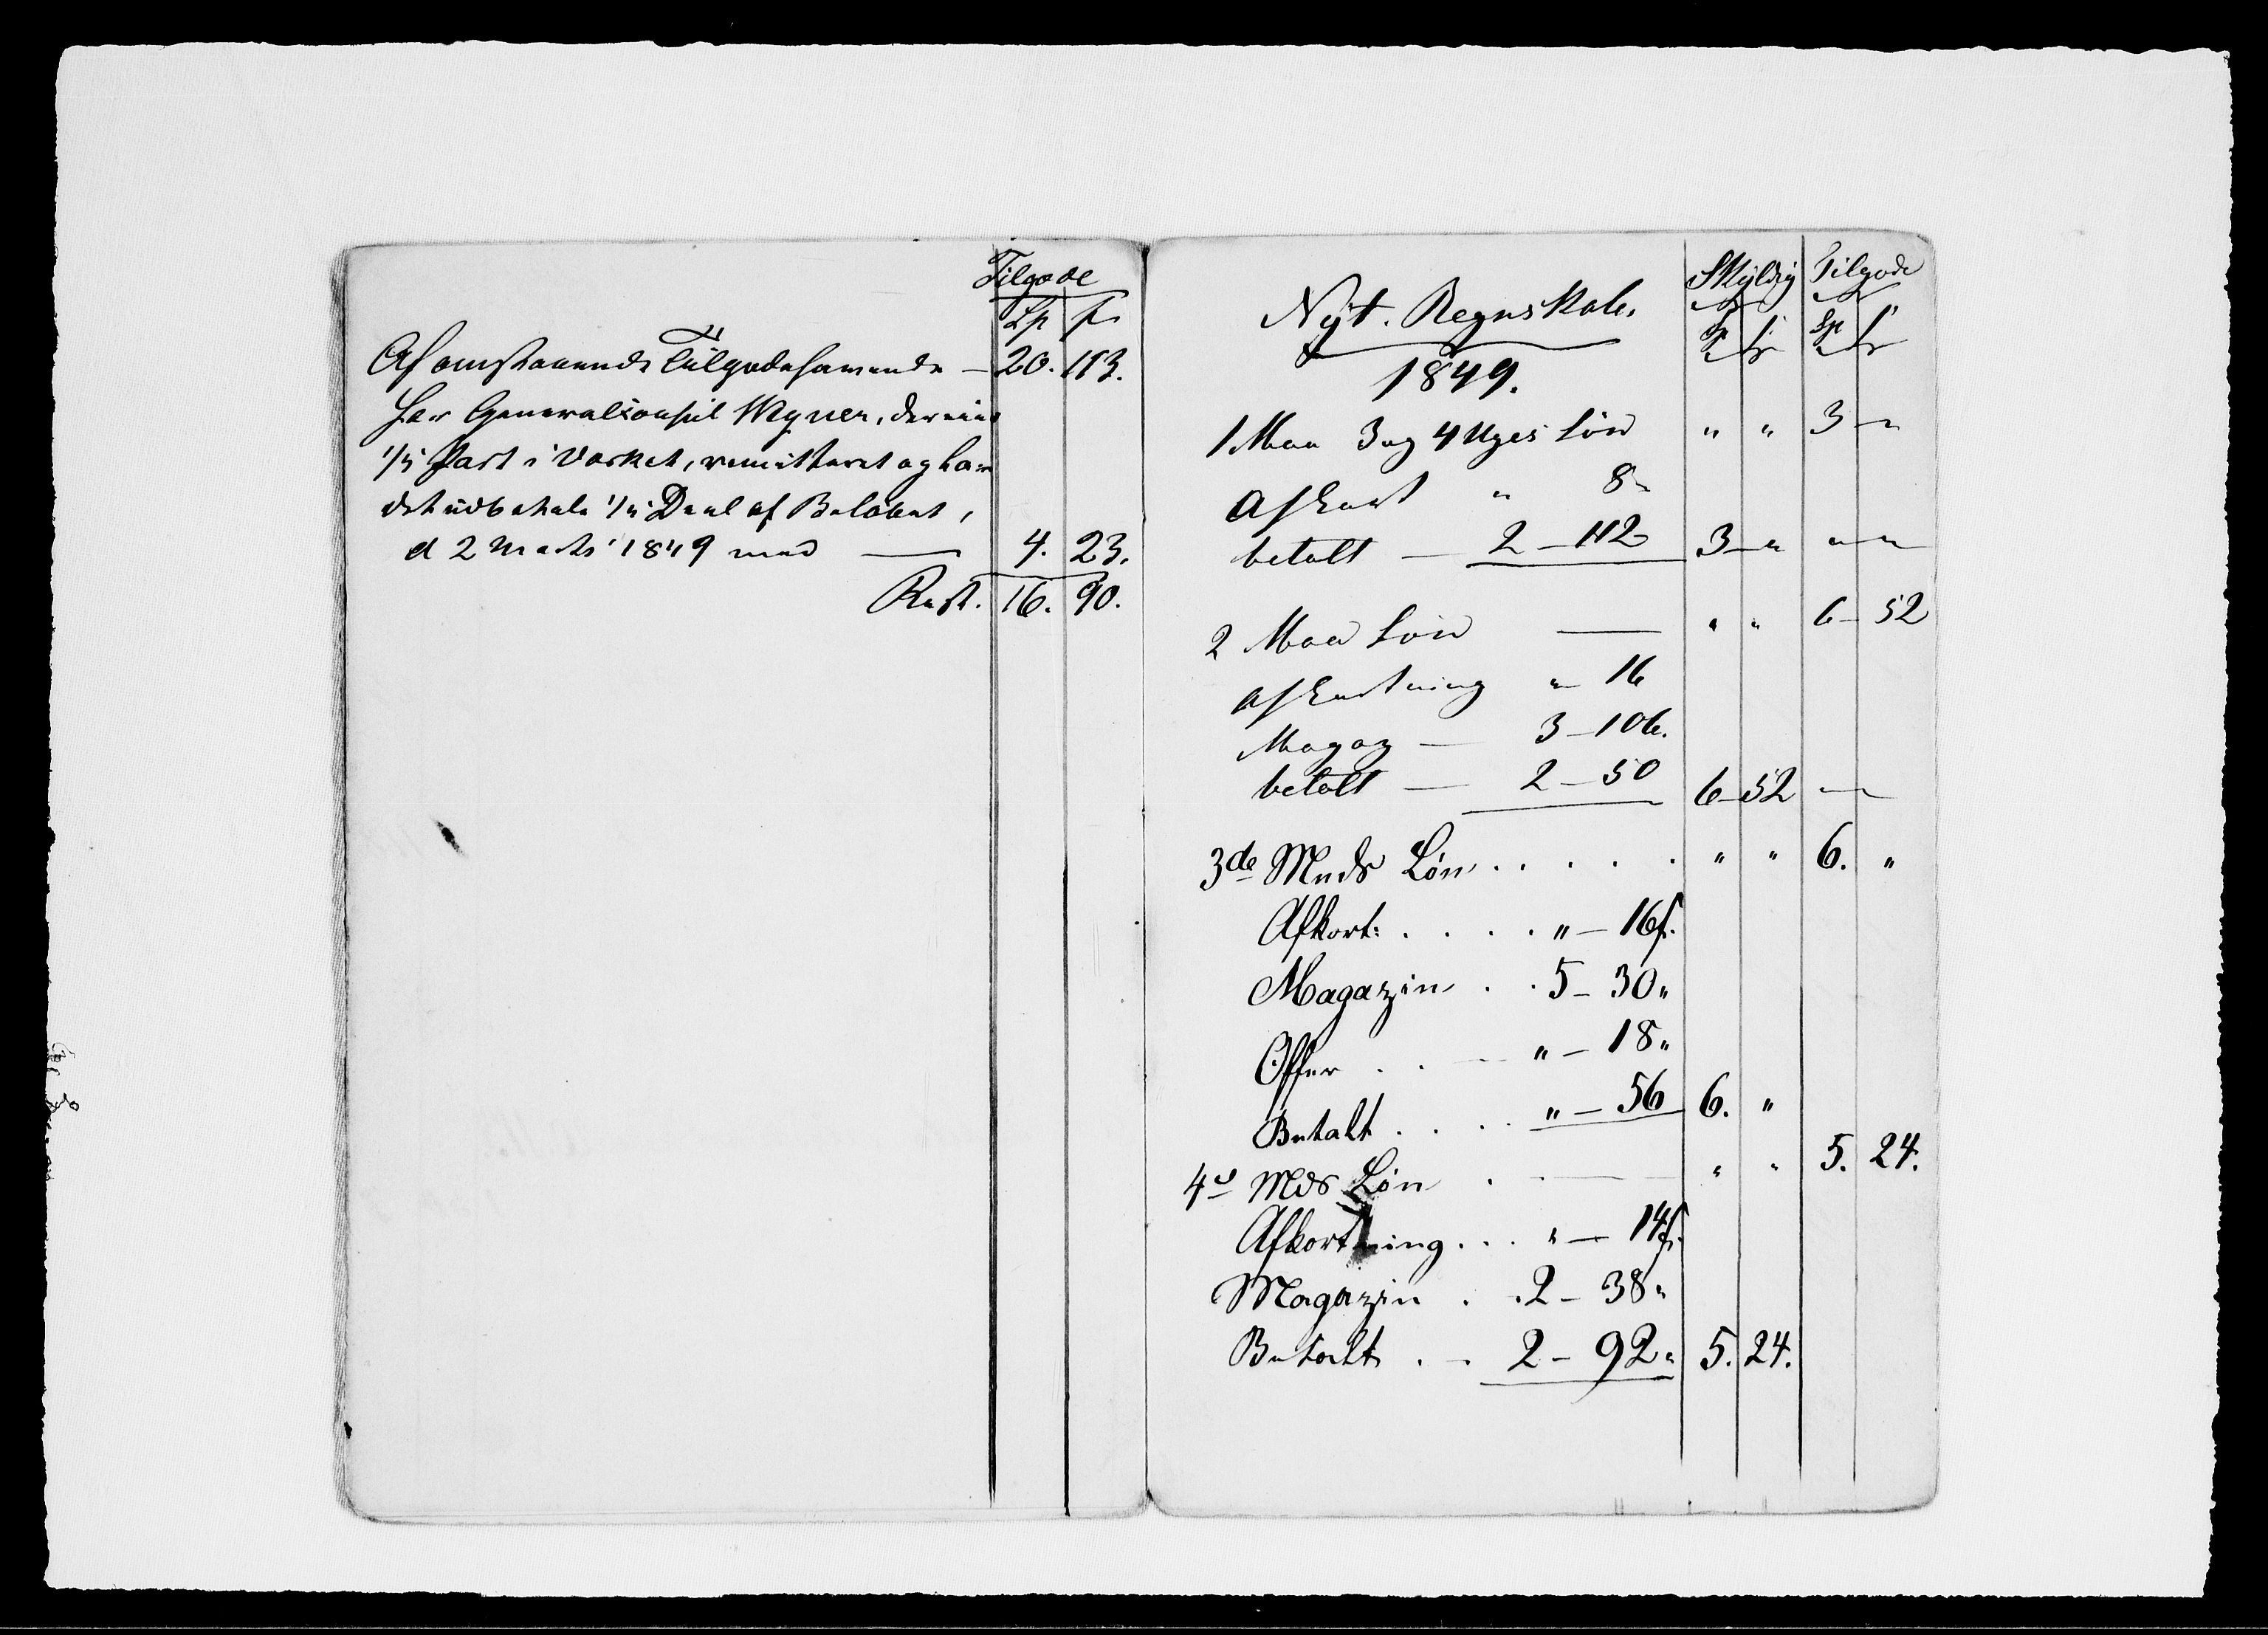 Tilgode
Sp ſ
Af omstaaende Tilgodehavende — 20. 113.
har Generalconsul Wegner, der eier
1/5 Part i Værket, remitteret og har
det udbetale 1/5 Deel af Beløbet,
d 2 Marts 1849 med — 4. 23.
Rest. 16. 90.
Nyt. Regnskab.
1849.
Skyldig Tilgode
Sp ſ Sp ſ
1 Maa 3 og 4 Uges Løn " " 3 – "
Afkort " 8
betalt — 2 – 112 3 – " " – "
2 Maa Løn — " " 6 – 52
Afkortning " 16
Magaz — 3 – 106.
betalt — 2 – 50 6 – 52 " – "
3de Mnds Løn . . . . . " " 6. "
Afkort: . . . . " – 16 ſ.
Magazin . . 5 – 30 "
Offer . . — " – 18 "
Betalt . . . . " – 56 6. "
4de Mds Løn . — " " 5. 24.
Afkortning . . . " — 14 ſ.
Magazin . . 2 – 38 "
Betalt . – 2 – 92 " 5. 24.